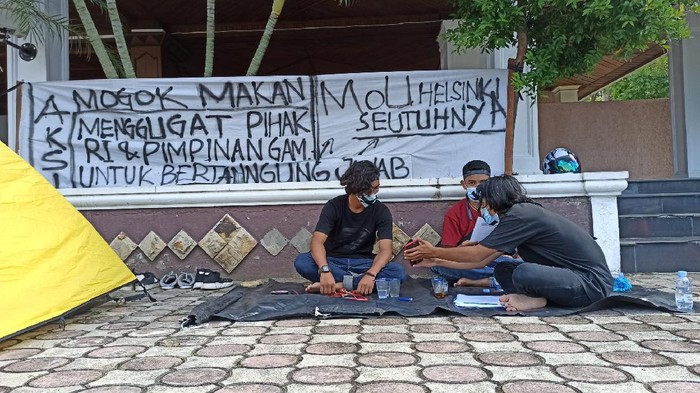 AKSI
MOGOK MAKAN
MENGGUGAT PIHAK
RI & PIMPINAN GAM
UNTUK BERTANNGUNG JAWAB
MoU HELSINKI
SEUTUHNYA